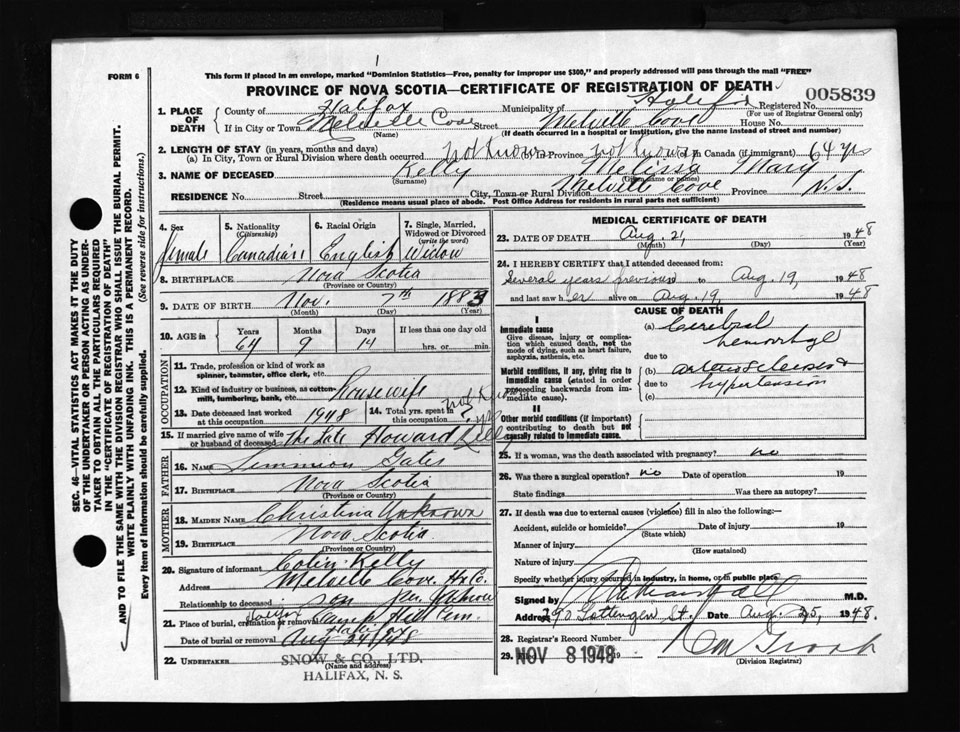 FORM 6
This form if placed in an envelope, marked "Dominion Statistics—Free, penalty for improper use $300," and properly addressed will pass through the mail "FREE"
PROVINCE OF NOVA SCOTIA—CERTIFICATE OF REGISTRATION OF DEATH
005839
1. PLACE OF DEATH
County of Halifax Municipality of Halifax Registered No.
(For use of Registrar General only)
If in City or Town Melville Cove Street Melville Cove House No.
(Name) (If death occurred in a hospital or institution, give the name instead of street and number)
2. LENGTH OF STAY (in years, months and days)
(a) In City, Town or Rural Division where death occurred not known (b) In Province not known (c) In Canada (if immigrant) 64 yrs
3. NAME OF DECEASED Kelly Melissa Mary
(Surname) (Given name or names)
RESIDENCE No. Street City, Town or Rural Division Melville Cove Province N.S.
(Residence means usual place of abode. Post Office Address for residents in rural parts not sufficient)
4. Sex female
5. Nationality (Citizenship) Canadian
6. Racial Origin English
7. Single, Married, Widowed or Divorced (write the word) Widow
8. BIRTHPLACE Nova Scotia
(Province or Country)
9. DATE OF BIRTH Nov. 7th 1883
(Month) (Day) (Year)
10. AGE in Years Months Days If less than one day old
64 9 14 hrs. or min.
OCCUPATION
11. Trade, profession or kind of work as spinner, teamster, office clerk, etc.
12. Kind of industry or business, as cotton-mill, lumbering, bank, etc. Housewife
13. Date deceased last worked at this occupation 1948
14. Total yrs. spent in this occupation not known ?
15. If married give name of wife or husband of deceased The Late Howard Kelly
FATHER
16. NAME Gates
17. BIRTHPLACE Nova Scotia
(Province or Country)
MOTHER
18. MAIDEN NAME Christina Unknown
19. BIRTHPLACE Nova Scotia
(Province or Country)
20. Signature of informant Colin Kelly
Address Melville Cove. Hx Co.
Relationship to deceased son
21. Place of burial, cremation or removal Camp Hill Cem. Halifax
Date of burial or removal Aug 24/48
22. UNDERTAKER SNOW & CO., LTD.
(Name and address)
HALIFAX, N. S.
MEDICAL CERTIFICATE OF DEATH
23. DATE OF DEATH Aug. 21 1948
(Month) (Day) (Year)
24. I HEREBY CERTIFY that I attended deceased from:
Several years previous to Aug. 19 1948
and last saw her alive on Aug. 19 1948
CAUSE OF DEATH
I
Immediate cause
Give disease, injury or complication which caused death, not the mode of dying, such as heart failure, asphyxia, asthenia, etc.
(a) Cerebral hemorrhage
due to
Morbid conditions, if any, giving rise to immediate cause (stated in order proceeding backwards from immediate cause)
(b) arteriosclerosis &
due to hypertension
(c)
II
Other morbid conditions (if important) contributing to death but not causally related to immediate cause.
25. If a woman, was the death associated with pregnancy? no
26. Was there a surgical operation? no Date of operation 19
State findings Was there an autopsy?
27. If death was due to external causes (violence) fill in also the following:—
Accident, suicide or homicide? Date of injury 19
(State which)
Manner of injury
(How sustained)
Nature of injury
Specify whether injury occurred in industry, in home, or in public place
Signed by M.D.
Address 290 Gottingen St. Date Aug. 25, 1948.
28. Registrar's Record Number
29. NOV 8 1948 19
(Division Registrar)
SEC. 46—VITAL STATISTICS ACT MAKES IT THE DUTY
OF THE UNDERTAKER OR PERSON ACTING AS UNDER-
TAKER TO OBTAIN ALL THE PARTICULARS REQUIRED
IN THE "CERTIFICATE OF REGISTRATION OF DEATH"
AND TO FILE THE SAME WITH THE DIVISION REGISTRAR WHO SHALL ISSUE THE BURIAL PERMIT.
WRITE PLAINLY WITH UNFADING INK. THIS IS A PERMANENT RECORD.
Every item of information should be carefully supplied. (See reverse side for instructions.)